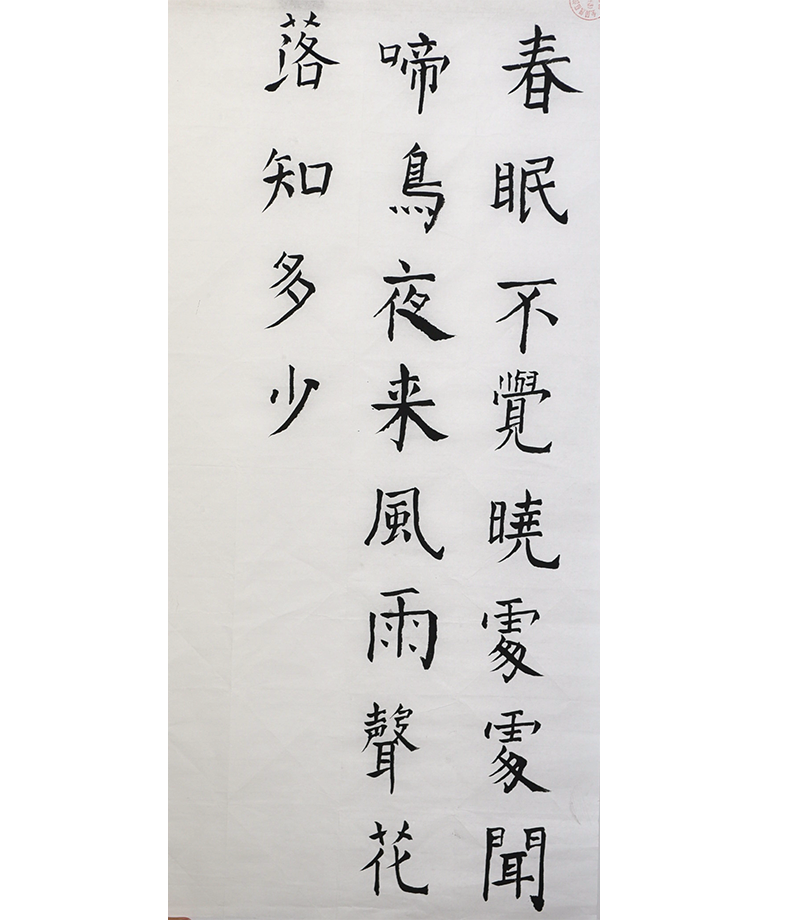 春眠不覺曉處處聞
啼鳥夜来風雨聲花
落知多少